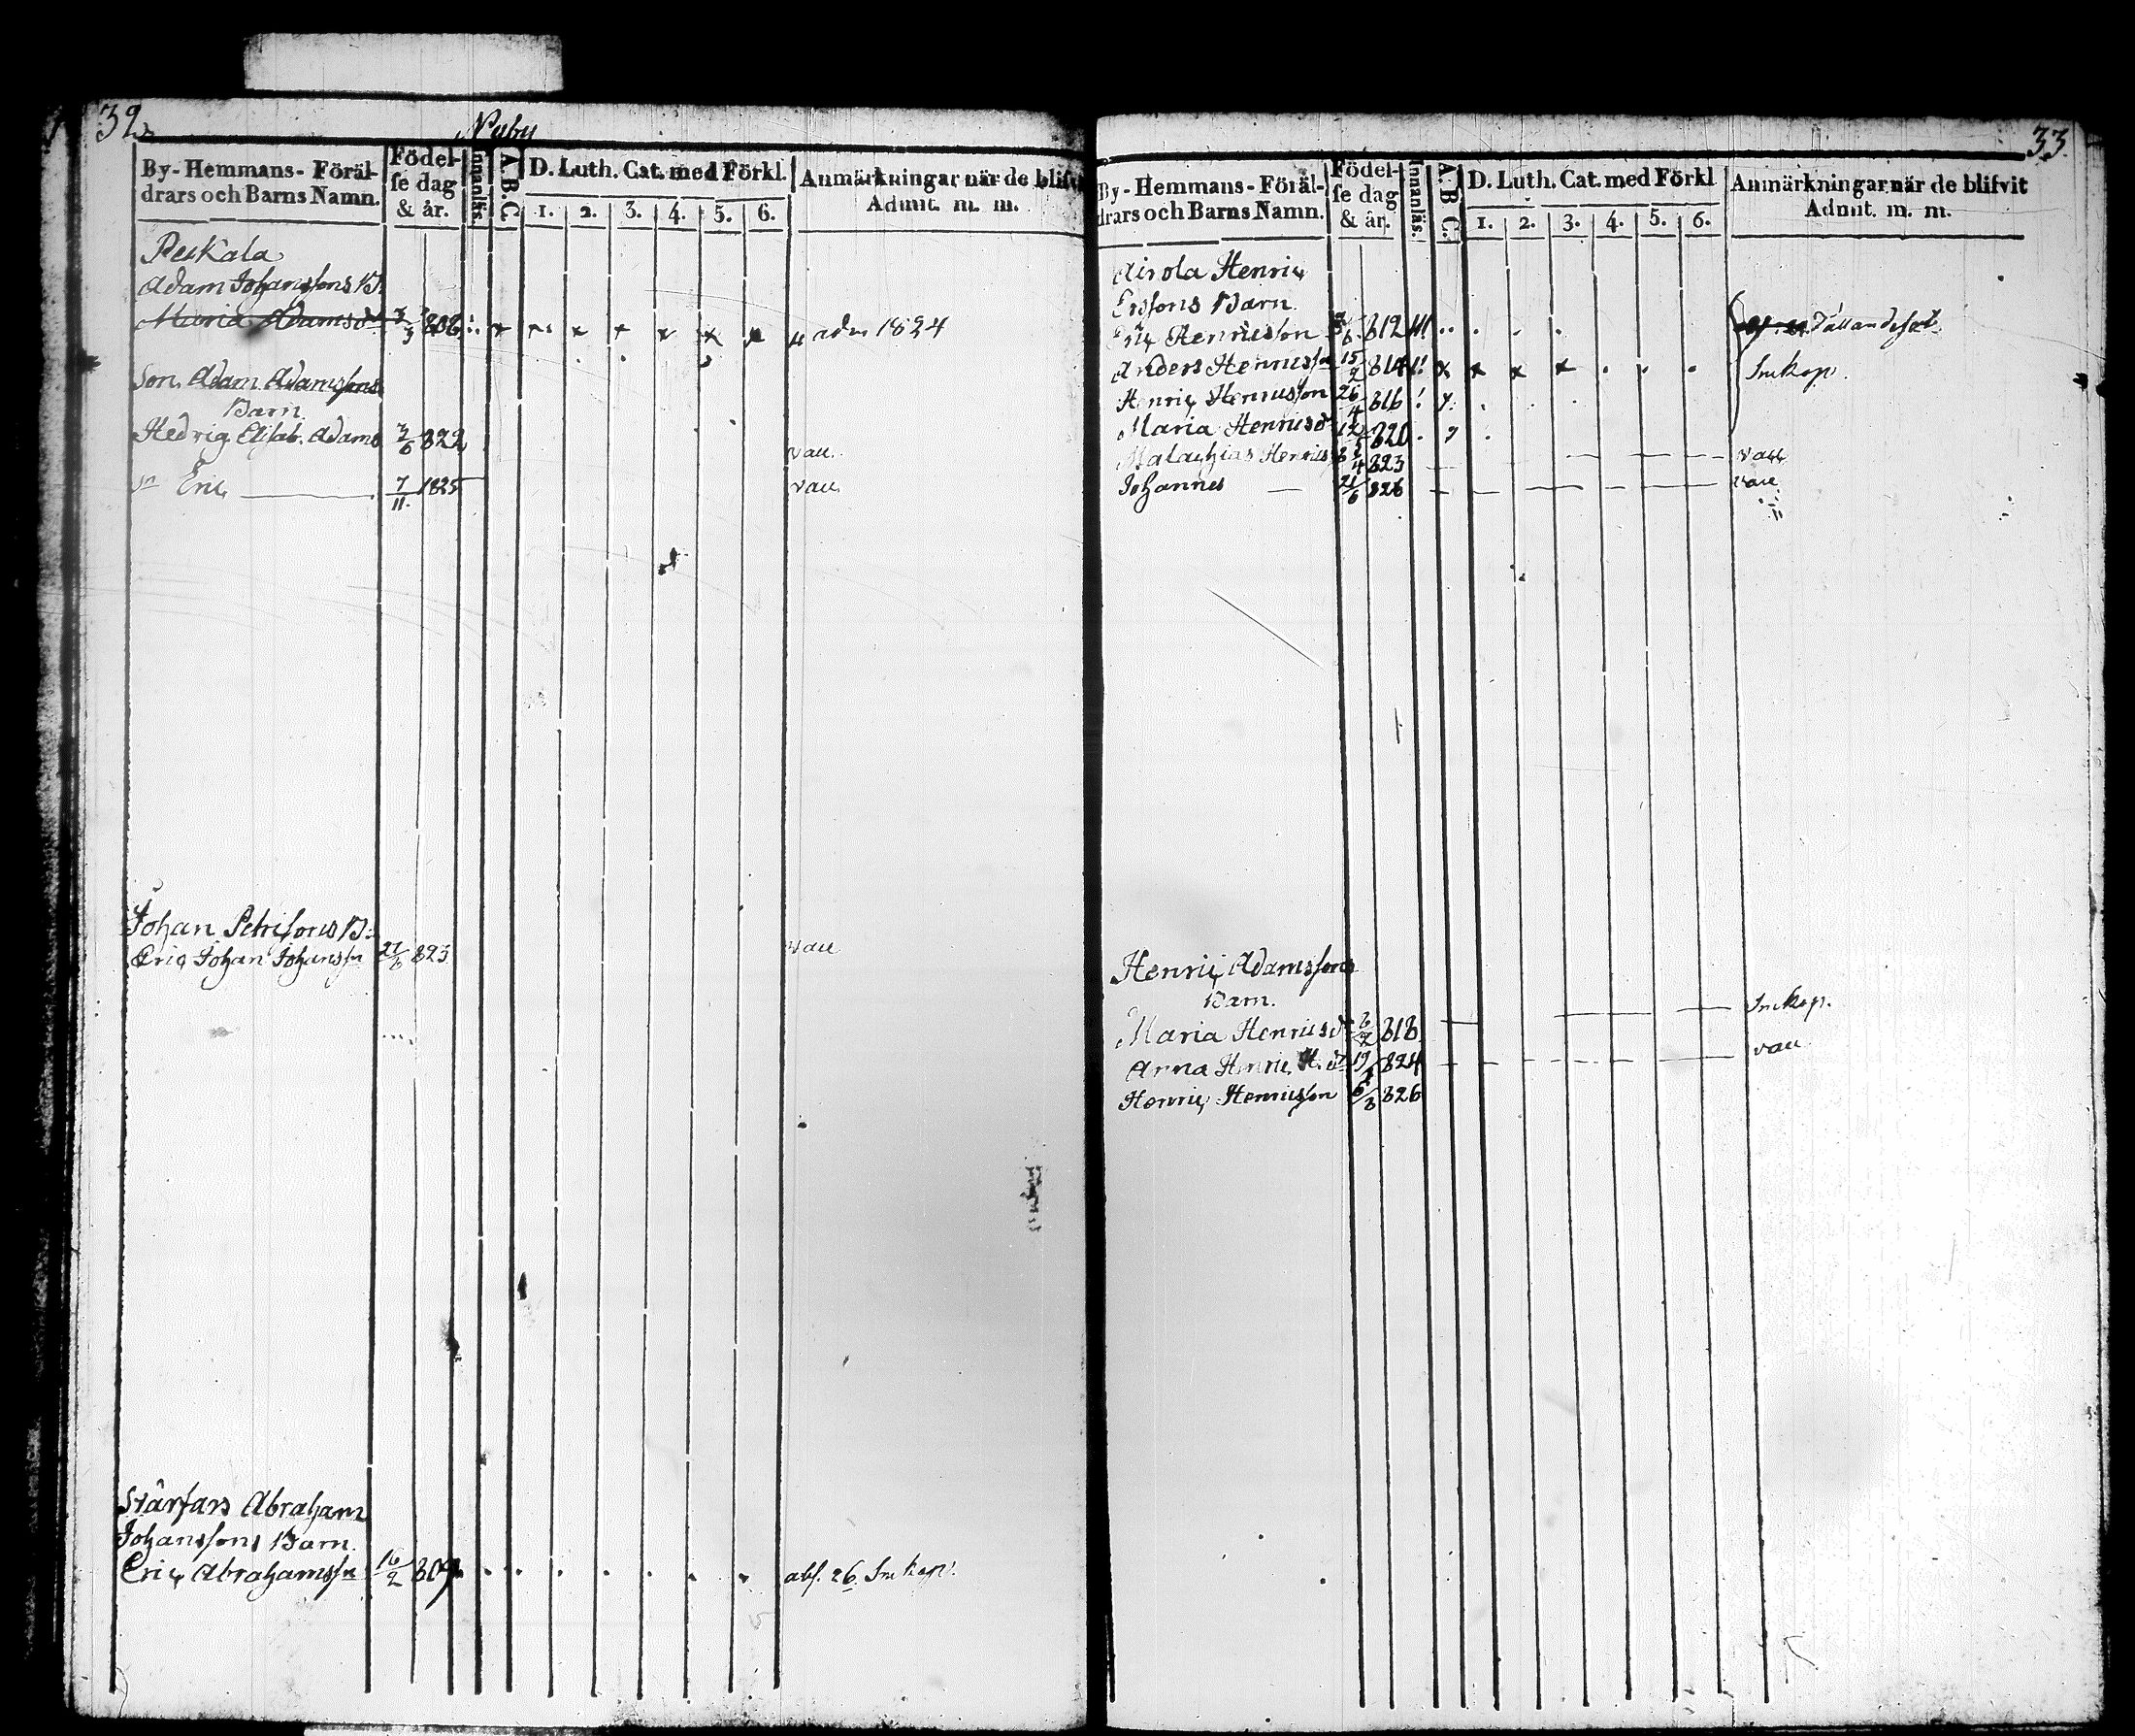 32
Nyby
By-Hemmans-Föräl-
drars och Barns Namn.
Födel-
se dag
& år.
Innanläs.
A. B. C.
D. Luth. Cat. med Förkl.
1. 2. 3. 4. 5. 6.
Anmärkningar när de blifv
Admit. m. m.
Adam Johanssons B.
Maria Adamsdr 3/3 808 x x x x x x adm 1824
Son. Adam Adamssons
Barn.
Hedvig Elisab. Adams 822 vacc.
Eric 7/11 1825 vacc.
Johan Petrissons B:
Eric Johan Johanssn 27/6 823 vacc
Abraham
Johanssons Barn.
Eric Abrahamssn 16/2 809 abs. 26. Smkop.
33
By-Hemmans-Föräl-
drars och Barns Namn.
Födel-
se dag
& år.
Innanläs.
A. B. C.
D. Luth. Cat. med Förkl
1. 2. 3. 4. 5. 6.
Anmärkningar när de blifvit
Admit. m. m.
Airola Henric
Ersons Barn.
Henricsson 812
Anders Henricssn 15/2 814 x x x x Smkop.
Henric Henricsson 26/4 816
Maria Henricsdr 820
Malachias Henrics 823 vacc
Johannes 826 vacc
Henric Adamssons
Barn.
Maria Henricsdr 818 Smkop.
Anna Henric H. dr 19 824 vacc
Henric Henricsson 6/8 826